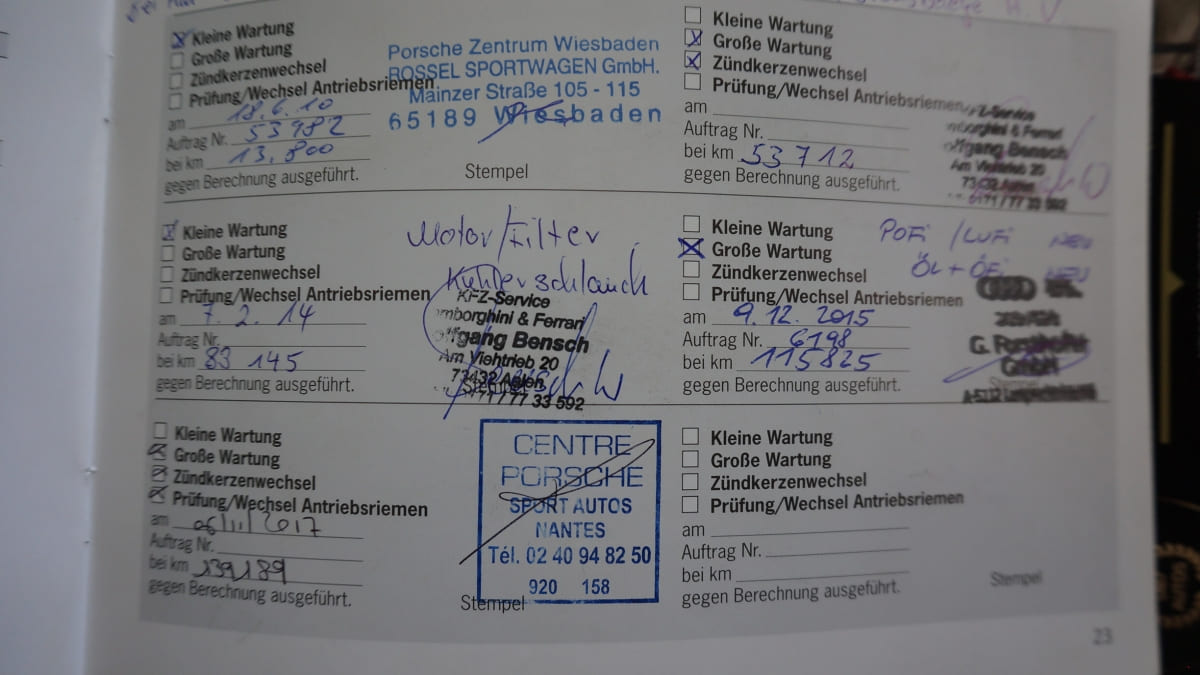 Kleine Wartung
Große Wartung
Zündkerzenwechsel
Prüfung/Wechsel Antriebsriemen
am 18.6.10
Auftrag Nr. 53982
bei km 13.800
gegen Berechnung ausgeführt.
Porsche Zentrum Wiesbaden
ROSSEL SPORTWAGEN GmbH.
Mainzer Straße 105 - 115
65189 Wiesbaden
Stempel
Kleine Wartung
Große Wartung
Zündkerzenwechsel
Prüfung/Wechsel Antriebsriemen
am
Auftrag Nr.
bei km 53712
gegen Berechnung ausgeführt.
Z-Service
mborghini & Ferrari
olfgang Bensch
Am Viehtrieb 20
73432 Aalen
0171 / 77 33 592
Kleine Wartung
Große Wartung
Zündkerzenwechsel
Prüfung/Wechsel Antriebsriemen
am 7. 2. 14
Auftrag Nr.
bei km 83 145
gegen Berechnung ausgeführt.
Motor/Filter
Kühlerschlauch
KFZ-Service
mborghini & Ferrari
olfgang Bensch
Am Viehtrieb 20
73432 Aalen
Stempel
0171 / 77 33 592
Kleine Wartung
Große Wartung
Zündkerzenwechsel
Prüfung/Wechsel Antriebsriemen
am 9.12.2015
Auftrag Nr. 6198
bei km 115825
gegen Berechnung ausgeführt.
POFi / LUFi NEU
ÖL + ÖFi NEU
G.
GmbH
Stempel
Kleine Wartung
Große Wartung
Zündkerzenwechsel
Prüfung/Wechsel Antriebsriemen
am 06/11/2017
Auftrag Nr.
bei km 139189
gegen Berechnung ausgeführt.
CENTRE
PORSCHE
SPORT AUTOS
NANTES
Tél. 02 40 94 82 50
920 158
Stempel
Kleine Wartung
Große Wartung
Zündkerzenwechsel
Prüfung/Wechsel Antriebsriemen
am
Auftrag Nr.
bei km
gegen Berechnung ausgeführt.
Stempel
23